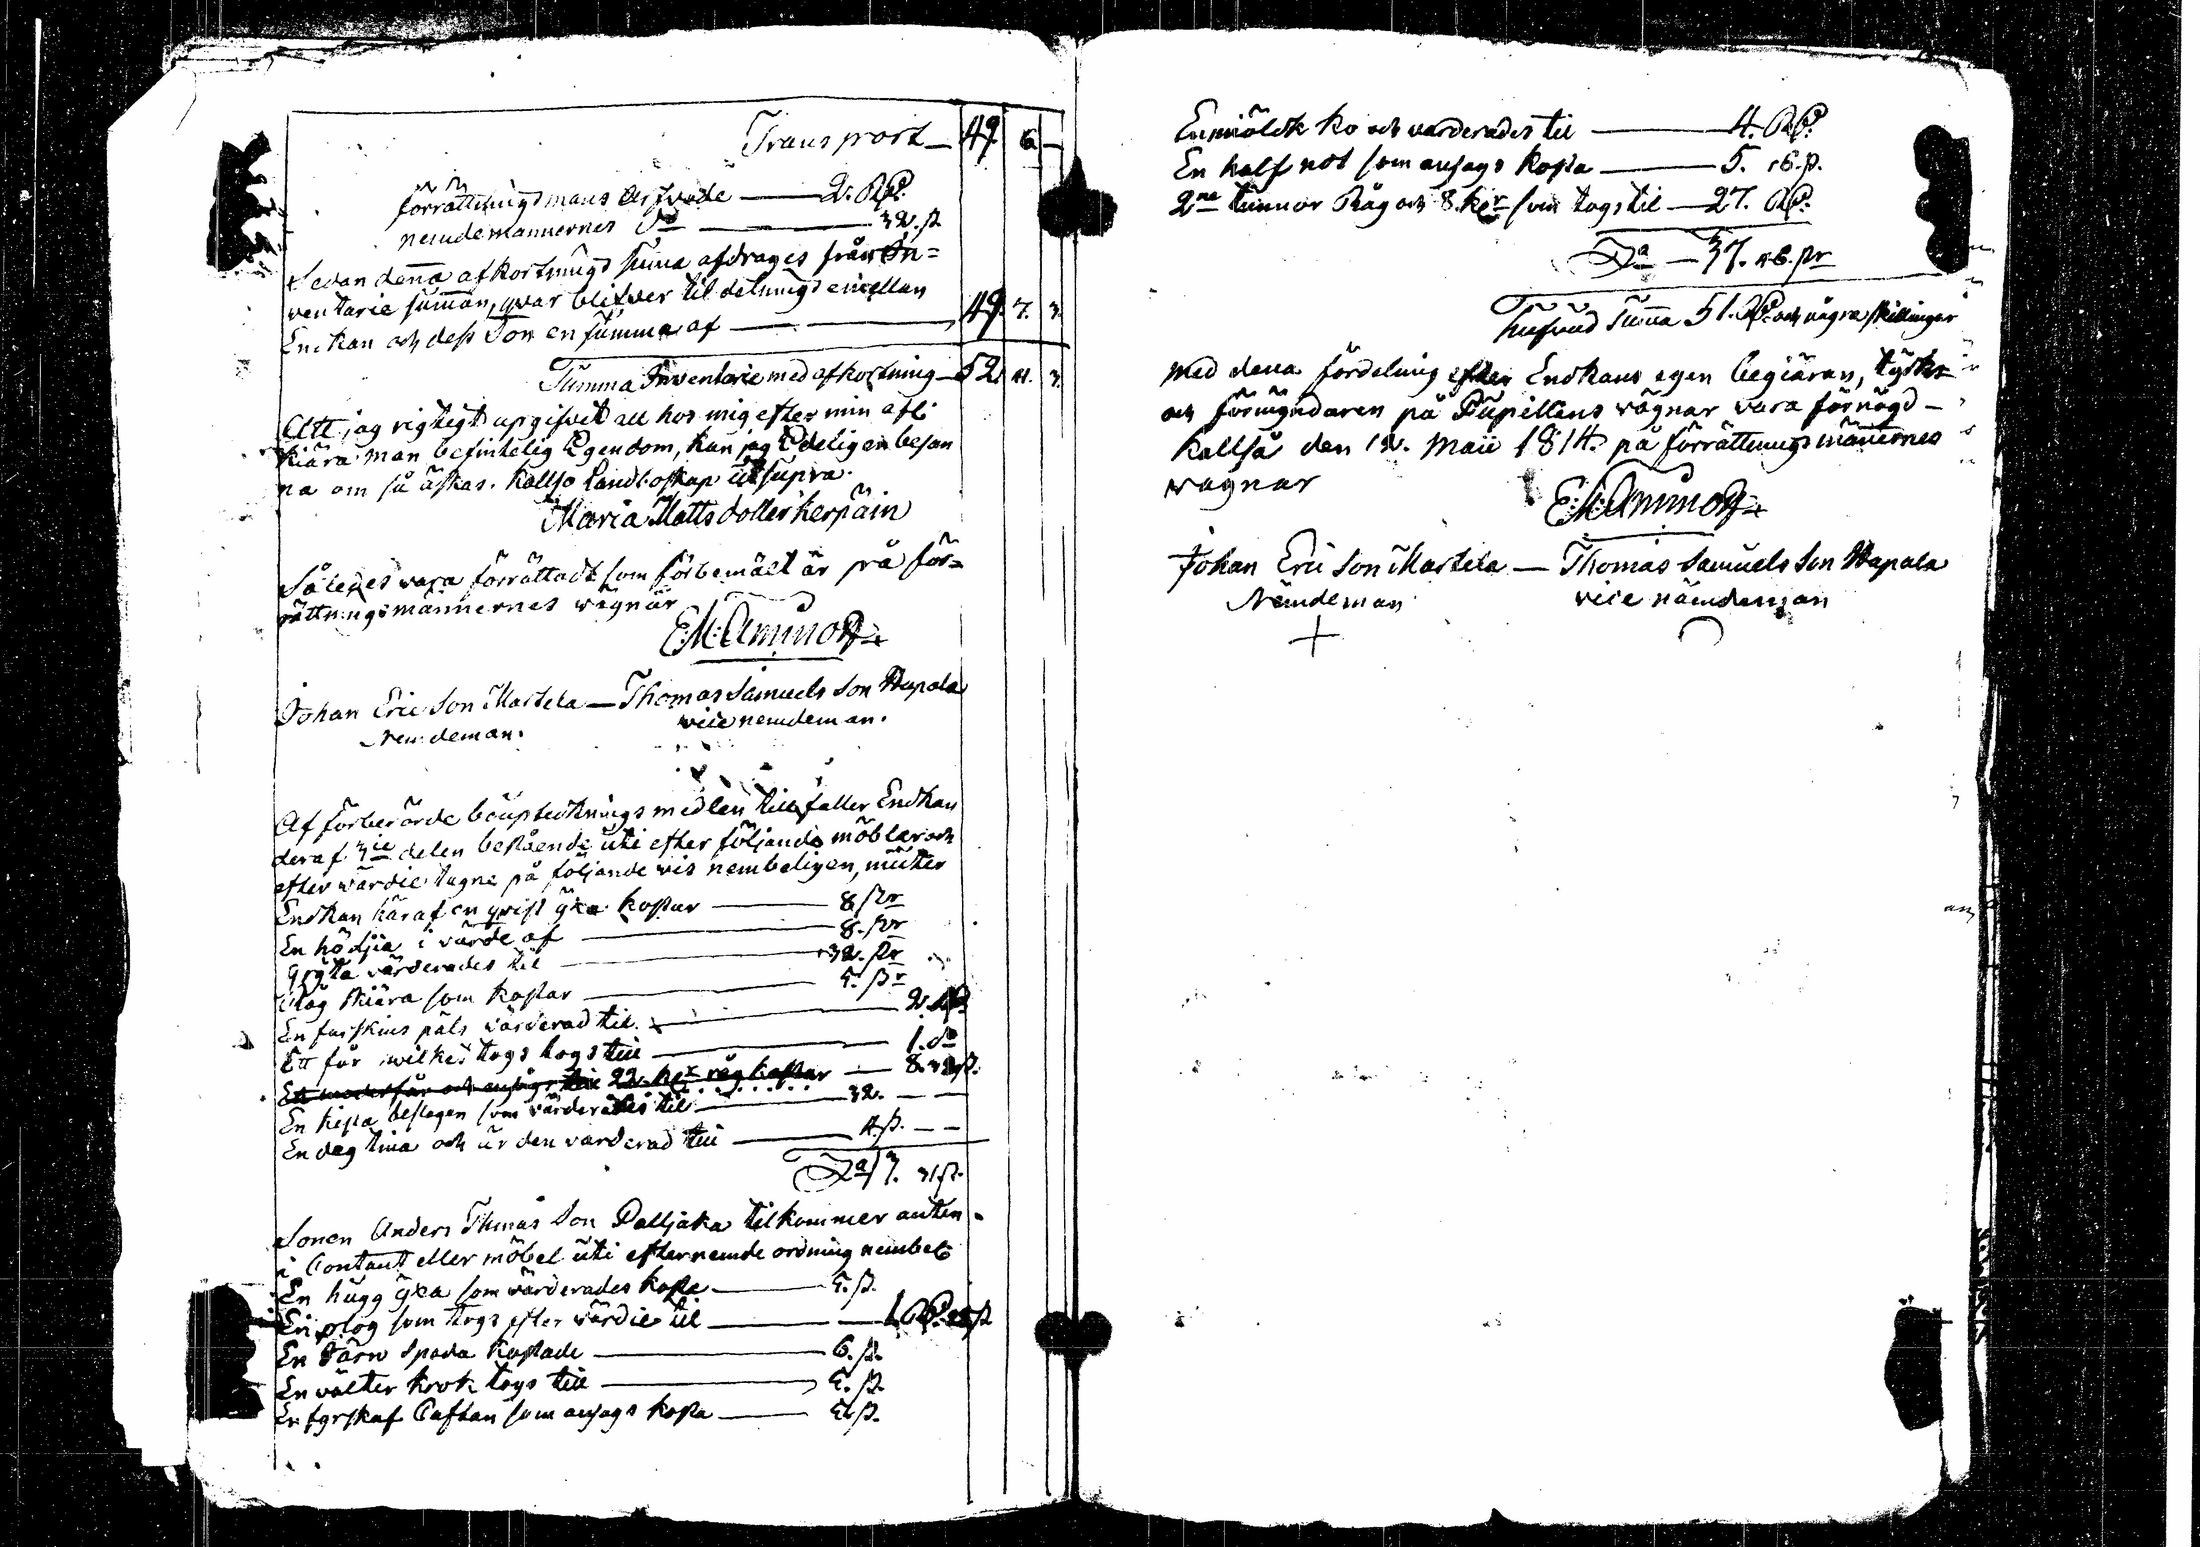 Transport — 49. 6. —
förrättningsmans Arfvode — 2. RP.
nemdemannernes Do — 32. s.
Sedan denna afkortnings suma afdrages från In=
ventarie summan, qvar blifver til delnings emellan
Enckan och dess Son en summa af — 49. 7. 3.
Summa Inventarie med afkortning — 52. 11. 3.
Att jag rigtigt upgifvit all hos mig efter min afl:
kiära man befintelig Egendom, kan jag Edeligen besan
na om så äskas. Kallso Landboskap ut supra.
Maria Matts dotter Kerpäin
Således vara förrättadt som förbemält är på för=
rättningsmännernes wägnar
E:M: Aminoff
Johan Eric Son Martela — Thomas Samuels Son Hapala
Nemdeman. vice nemdeman.
Af förberörde bouptecknings medlen tillfaller Enckan
deraf 3ie delen bestående uti efter följande möbler och
efter värdie tagne på följande vis nembeligen,
Enckan häraf en qvist yxa kostar — 8 sr
En hödjia i värde af — 8. sr
gryta värderades til — 32. sr
skiära som kostar — 5. sr
En fårskins päls värderad til. — 2. RP.
Ett får hwilket togs togs till — 1. do
En moderfår och ansågs till 22. ker råg kostar — 8. 32 s.
En kista beslagen som värderades til — 32. — —
En deg tina och är den värderad till — 4 s. — —
Sa 13. 31 s.
Sonen Anders Thomas Son Palljaka tilkommer anten
i Contant eller möbel uti efternemde ordning nembel:
En hugg yxa som värderades kosta — 5. s.
En plog som togs efter värdie til — 1. RP.
En Järn Spada kostade — 6. s.
En välter krok togs till — 5. s.
En Caftan som ansags kosta — s.
En miölck ko och värderades til — 4. RP.
En half not som ansags kosta — 5. 16. s.
2ne tunnor Råg och 8. ker som togs til — 27. RP.
Sa — 37. 16. sr
hufvud Suma 51. RP. och några skillingar
med dena fördelning efter Enckans egen begiäran,
och förmyndaren på Pupillens vägnar vara förnögd —
Kallså den 12. Maii 1814. på förrättnings männernes
vägnar
E:M: Aminoff
Johan Eric Son Martela — Thomas Samuels Son Hapala
Nämdeman vice nämdeman